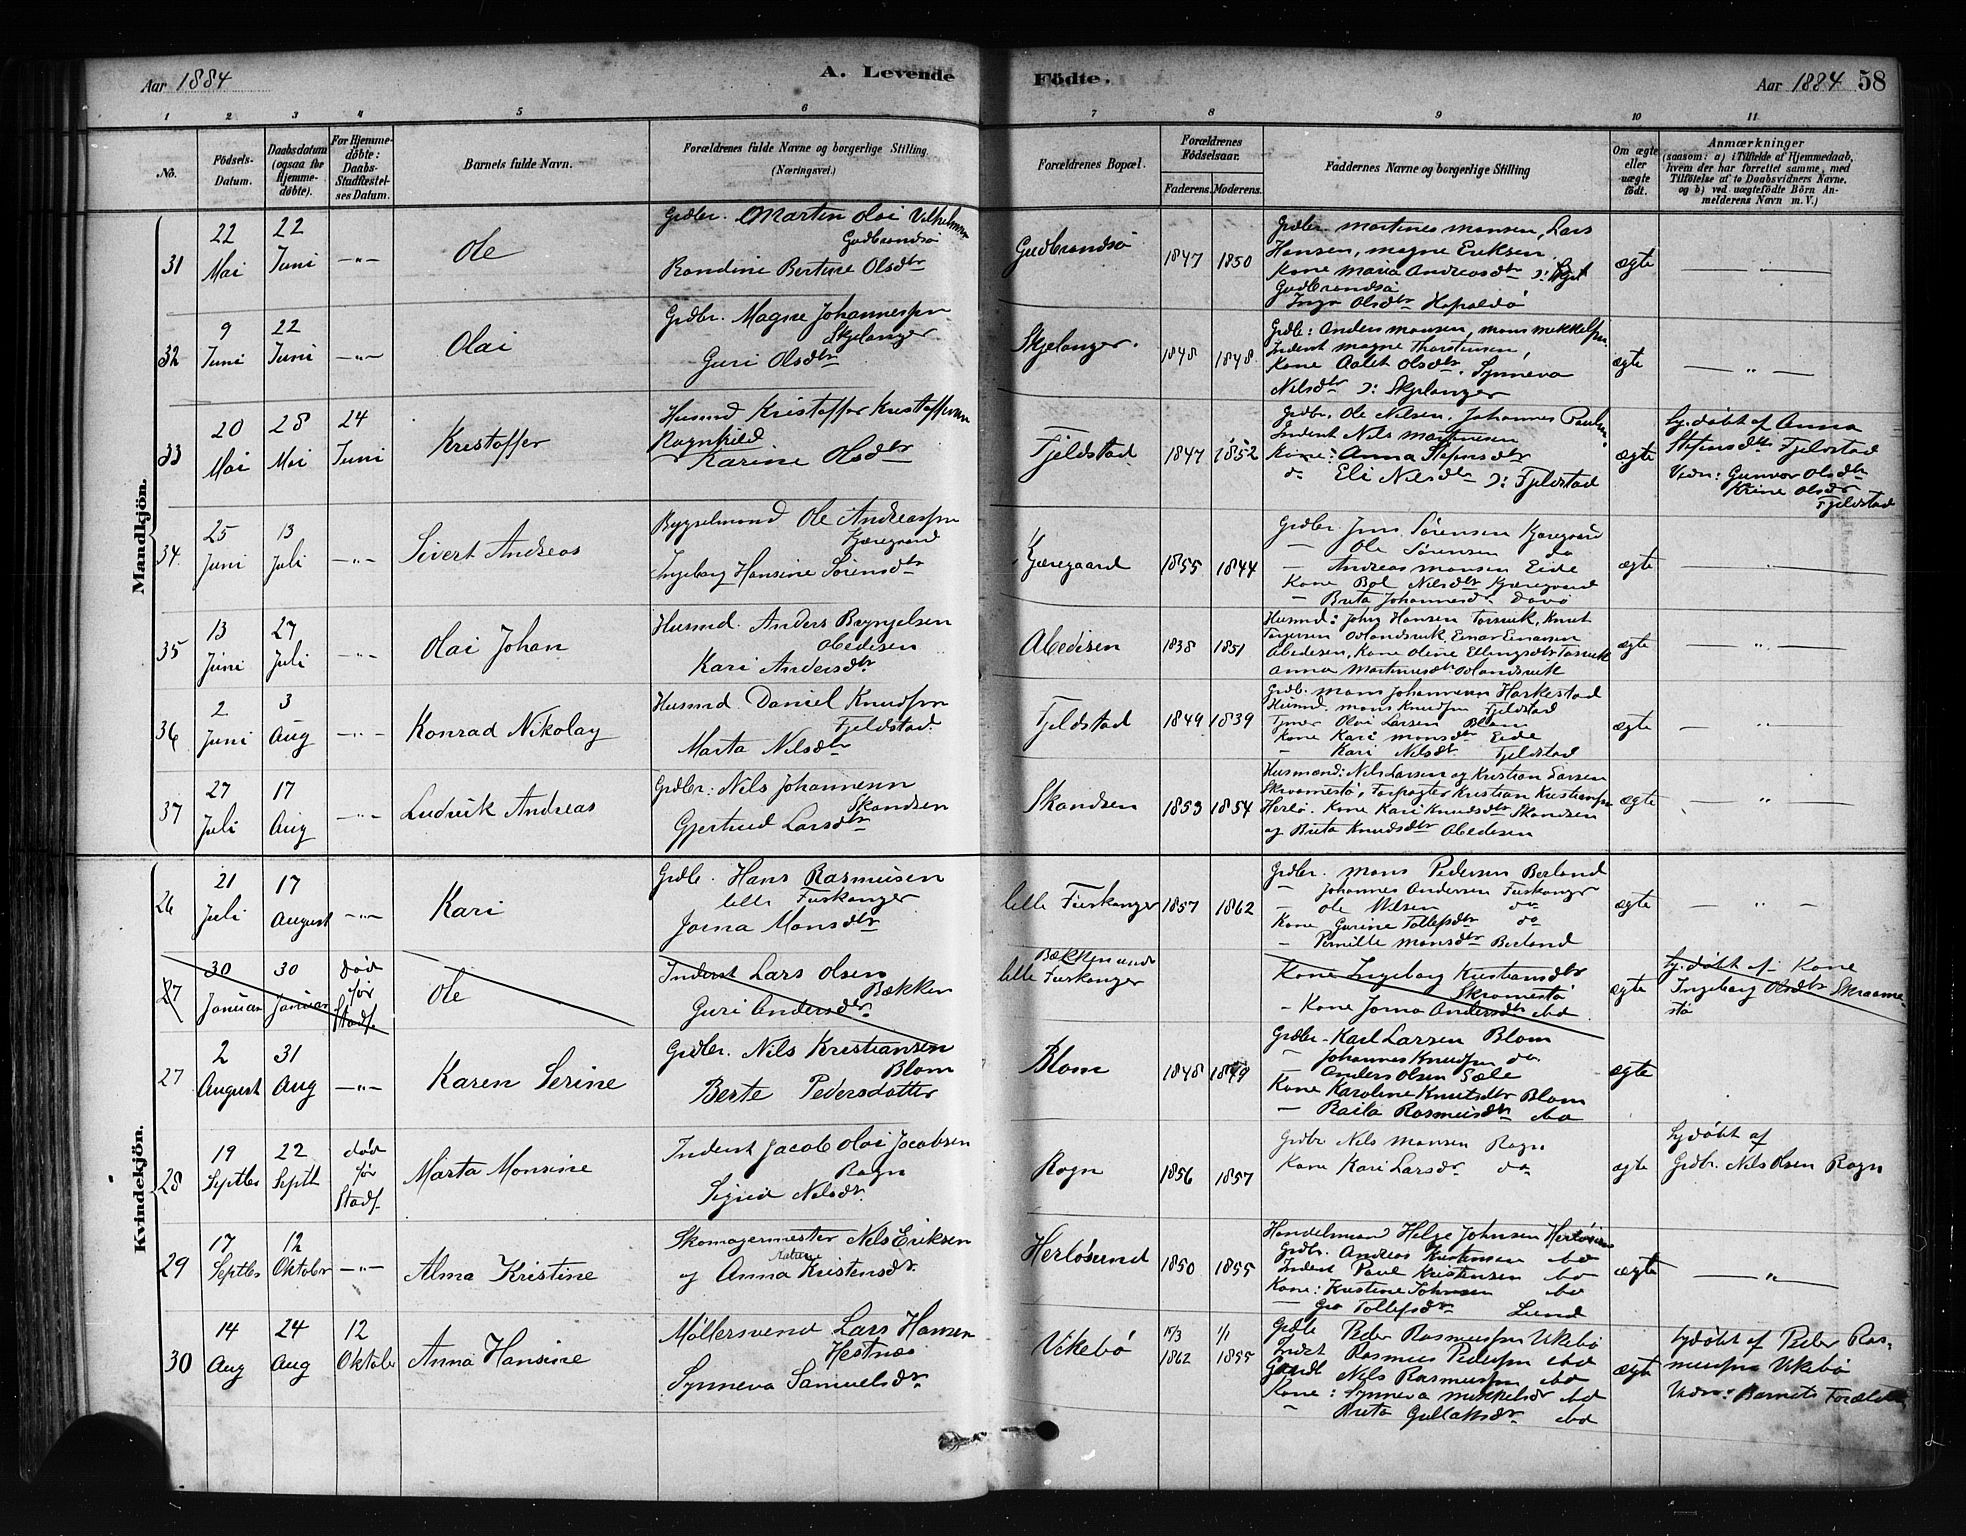 Aar 1884
A. Levende
Födte.
Aar 1884 58
1 2 3 4 5 6 7 8 9 10 11
No.
Födsels-Datum.
Daabsdatum (ogsaa for Hjemme-döbte).
For Hjemme-döbte: Daabs-Stadfæstel-ses Datum.
Barnets fulde Navn.
Forældrenes fulde Navne og borgerlige Stilling.
(Næringsvei.)
Forældrenes Bopæl.
Forældrenes Födselsaar.
Faderens. Moderens.
Faddernes Navne og borgerlige Stilling
Om ægte eller uægte födt.
Anmærkninger
(saasom: a) i Tilfælde af Hjemmedaab, hvem der har forrettet samme, med Tilföielse af to Daabsvidners Navne, og b) ved uægtefödte Börn An-melderens Navn m. V.)
Mandkjön.
31
22 Mai
22 Juni
—"—
Ole
Grdbr. Martin Olai Vilhelmsen
Gudbrandsö
Randine Bertine Olsdtr
Gudbrandsö
1847 1850
Grdbr. Martines Monsen, Lars
Hansen, Magne Eriksen
Kone Maria Andreasdtr
Gudbrandsö
Inga Olsdtr
ægte
— " —
32
9 Juni
22 Juni
—"—
Olai
Grdbr. Magne Johannessen
Skjelanger
Guri Olsdtr
Skjelanger.
1848 1848.
Grdbr: Anders Monsen, Mons Mikkelsen
Inderst Magne Thorstensen,
Kone Aalet Olsdtr, Synneva
Nilsdtr ): Skjelanger
ægte
— " —
33
20 Mai
28 Mai
24 Juni
Kristoffer
Husmd Kristoffer Kristoffersen
Ragnhild
Karine Olsdtr
Fjeldstad
1847 1852
Grdbr. Ole Nilsen, Johannes Paulsen
Inderst Nils Martinesen
Kone: Anna Stefensdtr
do Eli Nilsdtr ): Fjeldstad
ægte
hj. döbt af Anna
Stefensdtr Fjeldstad
Vidn: Gunvor Olsdtr
Karine Olsdtr
Fjeldstad
34.
25 Juni
13 Juli
—"—
Sivert Andreas
Bygselmand Ole Andreassen
Kjæregaard
Ingeborg Hansine Sörensdtr
Kjæregaard
1855 1844
Grdbr. Jens Sörensen Kjæregaard
— Ole Sörensen do
— Andreas Monsen Eide
Kone Bol Nilsdtr Kjæregaard
— Brita Johannesdtr
ægte
— " —
35
13 Juni
27 Juli
—"—
Olai Johan
Husmd. Anders Bryngelsen
Abedisen
Kari Andersdtr
Abedisen
1838 1851
Husmd: John Hansen Torsvik, Knut
Torgersen Odlandsvik, Einar Einarsen
Abedisen, Kone Oline Ellingsdtr Torsvik
Anna Martinusdtr Odlandsvik
ægte
— " —
36
2 Juni
3 Aug
—"—
Konrad Nikolay
Husmd. Daniel Knudsen
Fjeldstad.
Marta Nilsdtr
Fjeldstad
1849 1839
Grdb. Mons Johannessen Harkestad
Husmd. Mons Knudsen Fjeldstad
Tjener Olai Larsen Blom
Kone Kari Monsdtr Eide
— Kari Nilsdtr. Fjeldstad
ægte
— " —
37
27 Juli
17 Aug
—"—
Ludvik Andreas
Grdbr: Nils Johannessen
Skandsen
Gjertrud Larsdtr
Skandsen
1853 1854
Husmænd: Nils Larsen og Kristian Larsen
Skraamestö, Forpagter Kristian Kristiansen
Herlö. Kone Kari Knudsdtr Skandsen
og Brita Knudsdtr Abedisen
ægte
— " —
Kvindekjön.
26
21 Juli
17 August
—"—
Kari
Grdbr. Hans Rasmusen
lille Furskanger
Jorna Monsdtr
lille Furskanger
1857 1862
Grdbr. Mons Pedersen Berland
— Johannes Andersen Furskanger
— Ole Nilsen do
Kone Gurine Tollefsdtr do
— Pernille Monsdtr Berland
ægte
— " —
27
30 Januar
30 Januar
död för Stadf.
Ole
Inderst Lars Olsen
Bækken
Guri Andersdtr
lille Furskanger
Kone Ingeborg Kristiansdtr
Skromestö
— Kone Jorna Andersdtr ibd
ægte
hj. döbt af: Kone
Ingeborg Olsdtr Skraame-
stö
27
2 August
31 Aug
—"—
Karen Serine
Grdbr. Nils Kristiansen
Blom
Berte Pedersdatter
Blom
1848 1849
Grdbr. Karl Larsen Blom
— Johannes Knudsen do
— Anders Olsen Sæle
Kone Karoline Knutsdtr Blom
— Raila Rasmusdtr ibd
ægte
28
19 Septbr
22 Septb
död för Stadf.
Marta Monsine
Inderst Jacob Olai Jacobsen
Rogn
Sigrid Nilsdtr.
Rogn
1856 1857
Grdbr Nils Monsen Rogn
Kone Kari Larsdtr do
ægte
hj döbt af
Grdbr. Nils Olsen Rogn
29
17 Septbr
12 Oktober
—"—
Alma Kristine
Skomagermester Nils Eriksen
og Anna Kristensdtr.
Herlösund
1850 1855
Handelsmand Helge Johnsen Herlösund
Grdbr. Andreas Kristensen ibd
Inderst Paul Kristensen ibd
Kone: Kristine Johnsen ibd
— Gro Tollefsdtr Lund
ægte
— " —
30
14 Aug
24 Aug
12 Oktober
Anna Hansine
Möllersvend Lars Hansen
Hestnæs
Synneva Samuelsdtr.
Vikebö
15/3 1862 1/1 1855
Grdbr Peder Rasmussen Vikebö
Indst Rasmus Pedersen ibd
Nils Rasmussen ibd
Kone: Synneva Mikkelsdtr ibd
— Brita Gullaksdtr ibd
ægte
hjdöbt af Peder Ras-
mussen Vikebö
Vidn: Barnets Forældre